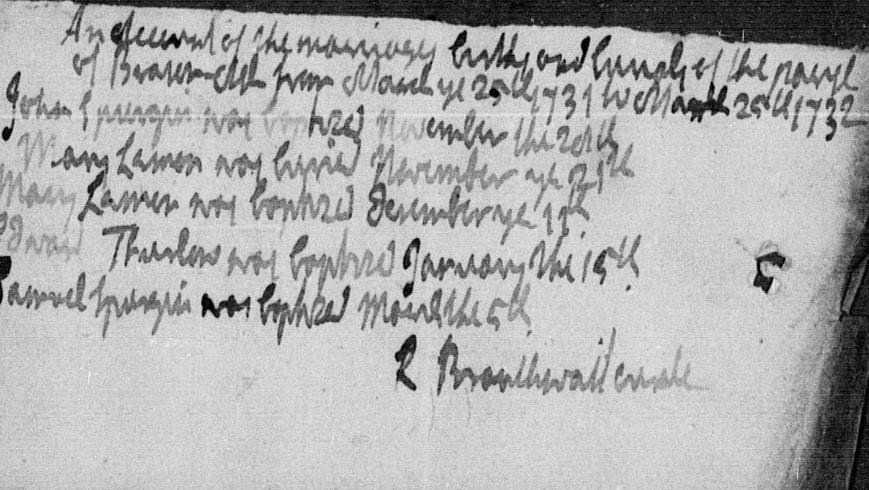 An Account of the marriages births and burials of the parish
of from March ye 25th 1731 to March 25th 1732
John Spurgin was baptized November the 20th
Mary Lamen was buried November ye 21th
Mary Lamen was baptized December ye 11th
Edward Thurlow was baptized January the 15th
Samuel Spurgin was baptized March the 5th
R Braithwait curate